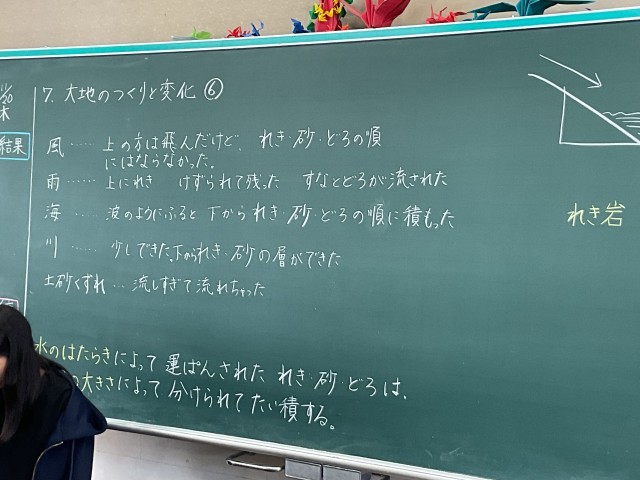 11/20
木
結果
7. 大地のつくりと変化 ⑥
風 …… 上の方は飛んだけど、 れき・砂・どろの順
にはならなかった。
雨 …… 上にれき けずられて残った すなとどろが流された
海 …… 波のようにふると 下から れき 砂・どろの順に積もった
川 …… 少しできた。下かられき・砂の層ができた
土砂くずれ … 流しすぎて流れちゃった
水のはたらきによって 運ぱんされた れき・砂・どろは、
大きさによって 分けられて たい積する。
れき岩